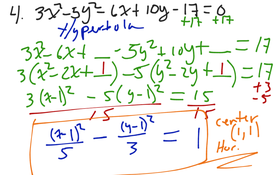 4. 3x²-5y²-6x+10y-17=0
+17 +17
Hyperbola
3x²-6x+__-5y²+10y+__=17
3(x²-2x+1)-5(y²-2y+1)=17
+3
-5
3(x-1)²-5(y-1)²=15
15 15
(x-1)²/5 - (y-1)²/3 = 1
center
(1,1)
Hor.